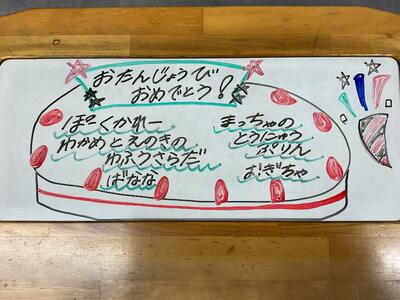 おたんじょうび
おめでとう!
ぽーくかれー
わかめとえのきの
わふうさらだ
ばなな
まっちゃの
とうにゅう
ぷりん
むぎちゃ